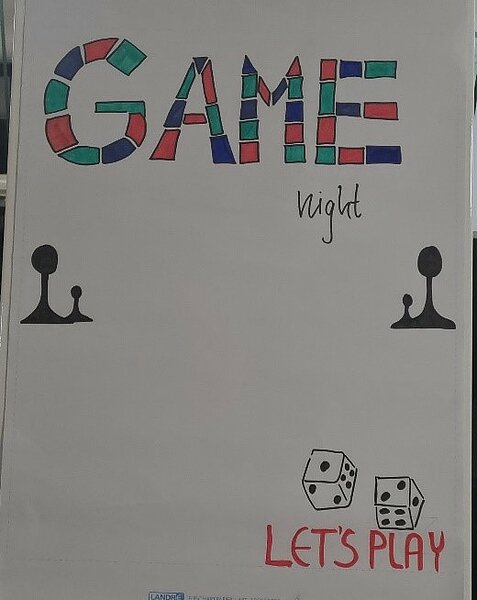 GAME
night
LET'S PLAY
LANDRÉ